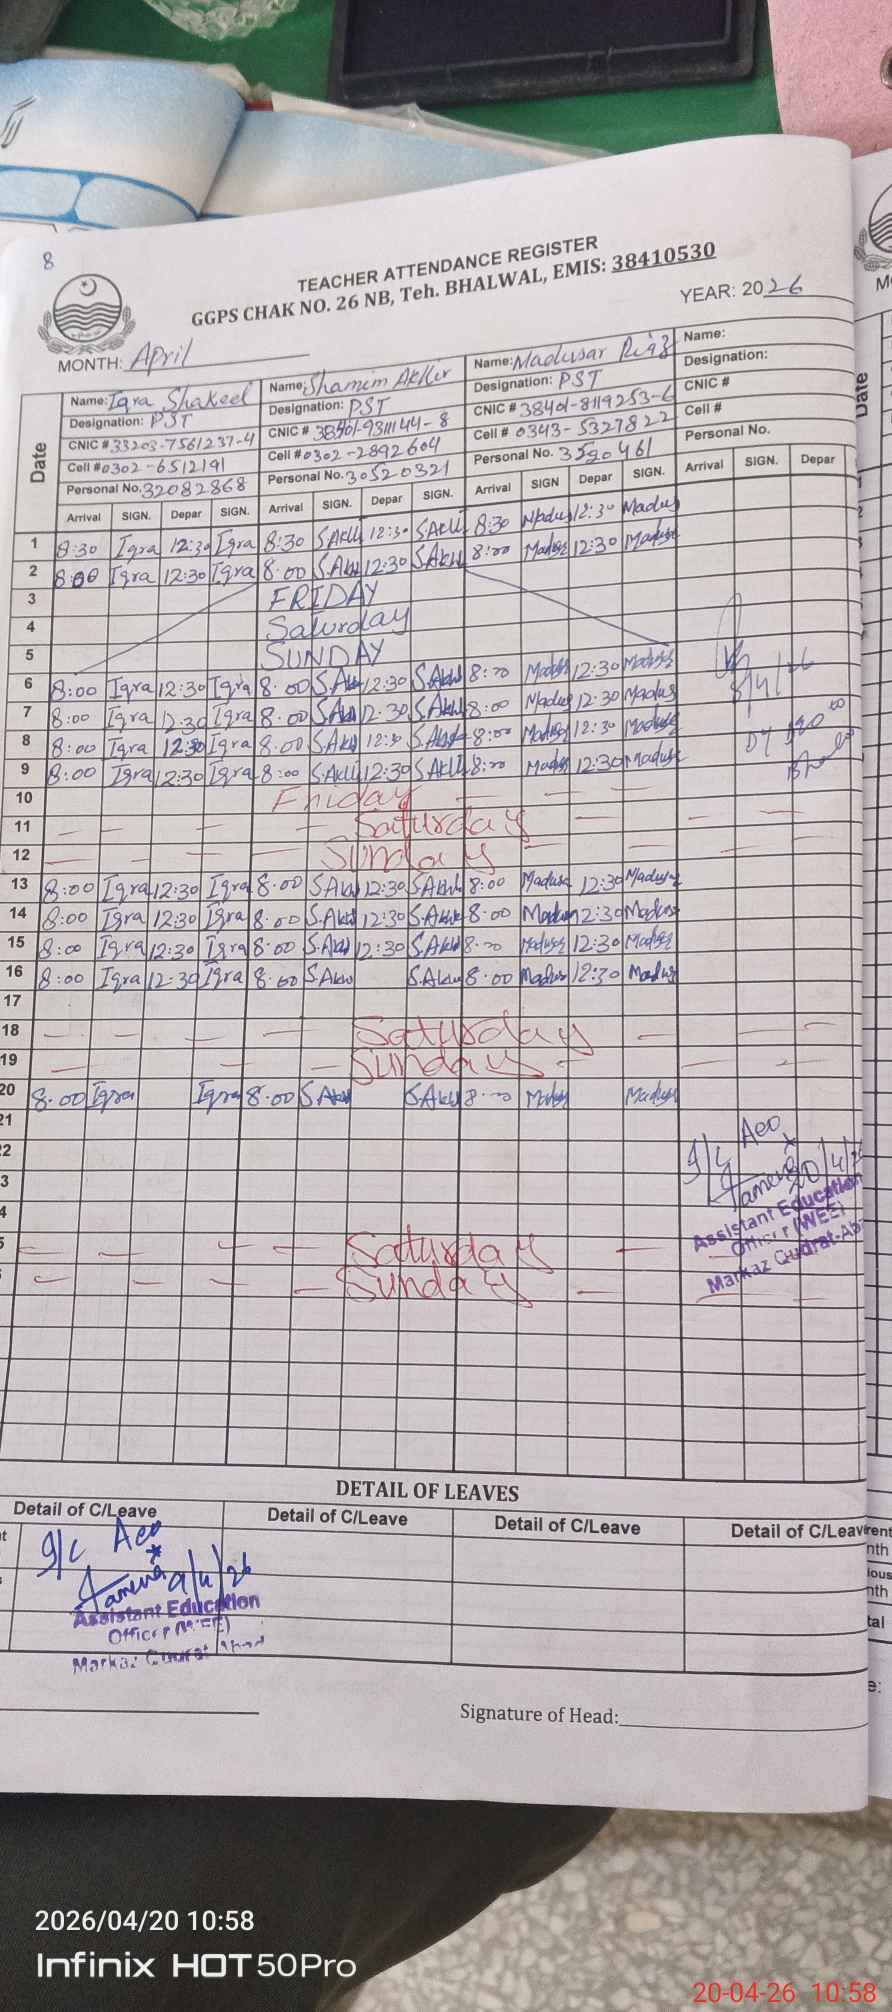 8
TEACHER ATTENDANCE REGISTER
GGPS CHAK NO. 26 NB, Teh. BHALWAL, EMIS: 38410530
MONTH: April
YEAR: 2026
Date
Name: Iqra Shakeel
Designation: PST
CNIC # 33203-7561237-4
Cell # 0302-6512191
Personal No. 32082868
Name: Shamim Akhtr
Designation: PST
CNIC # 38401-9311144-8
Cell # 0302-2892604
Personal No. 30520321
Name: Madusar Riaz
Designation: PST
CNIC # 38401-8119253-6
Cell # 0343-5327822
Personal No.
Name:
Designation:
CNIC #
Cell #
Personal No.
Arrival SIGN. Depar SIGN. Arrival SIGN. Depar SIGN. Arrival SIGN Depar SIGN. Arrival SIGN. Depar
1 8:30 Iqra 12:30 Iqra 8:30 S.Akh 12:30 S.Akh 8:30 Madus 12:30 Madus
2 8:00 Iqra 12:30 Iqra 8.00 S.Akh 12:30 S.Akh 8:00 Madus 12:30 Madus
3 FRIDAY
4 Saturday
5 SUNDAY
6 8:00 Iqra 12:30 Iqra 8.00 S.Akh 12:30 S.Akh 8:00 Madus 12:30 Madus
7 8:00 Iqra 12:30 Iqra 8.00 S.Akh 12:30 S.Akh 8:00 Madus 12:30 Madus
8 8:00 Iqra 12:30 Iqra 8.00 S.Akh 12:30 S.Akh 8:00 Madus 12:30 Madus
9 8:00 Iqra 12:30 Iqra 8:00 S.Akh 12:30 S.Akh 8:00 Madus 12:30 Madus
8/4/26
10 Friday
11 Saturday
12 Sunday
13 8:00 Iqra 12:30 Iqra 8.00 S.Akh 12:30 S.Akh 8:00 Madus 12:30 Madus
14 8:00 Iqra 12:30 Iqra 8.00 S.Akh 12:30 S.Akh 8.00 Madus 12:30 Madus
15 8:00 Iqra 12:30 Iqra 8.00 S.Akh 12:30 S.Akh 8.00 Madus 12:30 Madus
16 8:00 Iqra 12:30 Iqra 8.00 S.Akh S.Akh 8.00 Madus 12:30 Madus
17
18 Saturday
19 Sunday
20 8.00 Iqra Iqra 8.00 S.Akh S.Akh 8.00 Madus Madus
21
2
3
4
5 Saturday
Sunday
I/C Aeo
20/4/26
Assistant Education
Officer (WEE)
Markaz Qudrat-Ab
DETAIL OF LEAVES
Detail of C/Leave Detail of C/Leave Detail of C/Leave Detail of C/Leav
I/C Aeo
9/4/26
Assistant Education
Officer (WEE)
Markaz Qudrat Abad
Signature of Head:
2026/04/20 10:58
Infinix HOT 50Pro
20-04-26 10:58